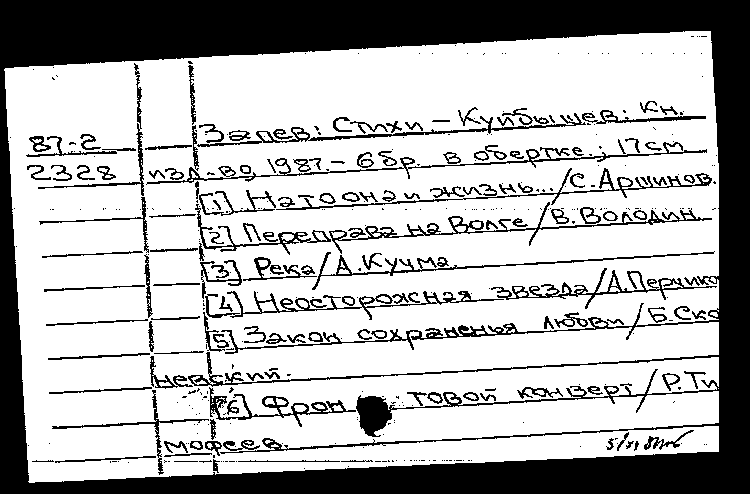 Запев: Стихи – Куйбышев: Кн.
87-2
2328 изд-во, 1987. – 6 бр. в обертке.; 17 см
[1] На то она и жизнь... / С. Аршинов.
[2] Переправа на Волге / В. Володин.
[3] Река / А. Кучма.
[4] Неосторожная звезда / А. Перчико
[5] Закон сохраненья любви / Б. Ско
невский.
[6] Фрон товой конверт / Р. Ти
мофеев.